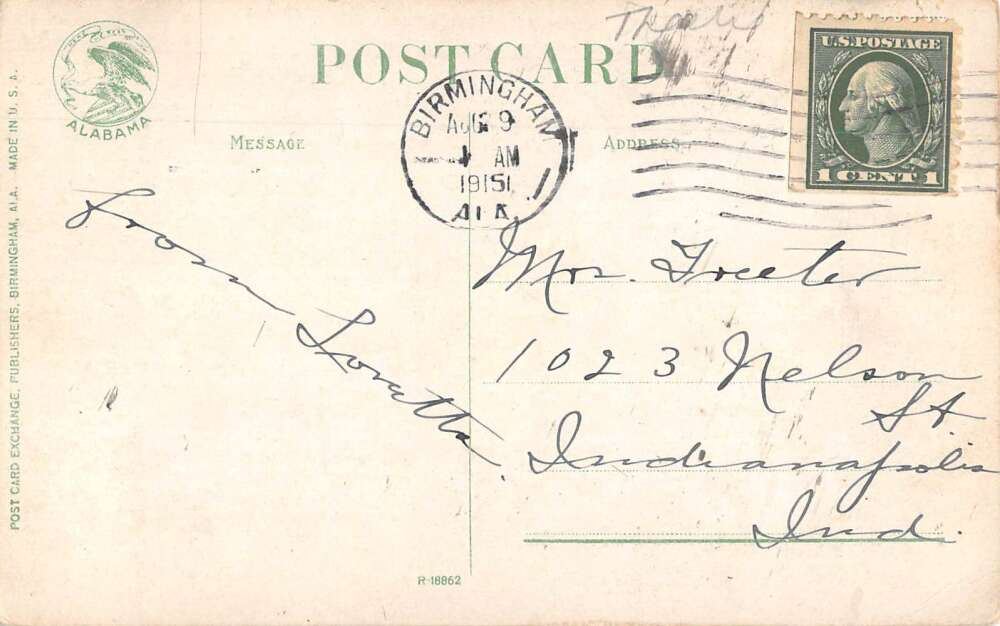 POST CARD
ALABAMA
MESSAGE
ADDRESS
BIRMINGHAM
AUG 9
AM
1915
ALA.
U.S. POSTAGE
1 CENT 1
From Loretta
Mrs. Freeter
1023 Nelson
St
Indianapolis
Ind.
POST CARD EXCHANGE, PUBLISHERS, BIRMINGHAM, ALA. MADE IN U.S.A.
R-18862